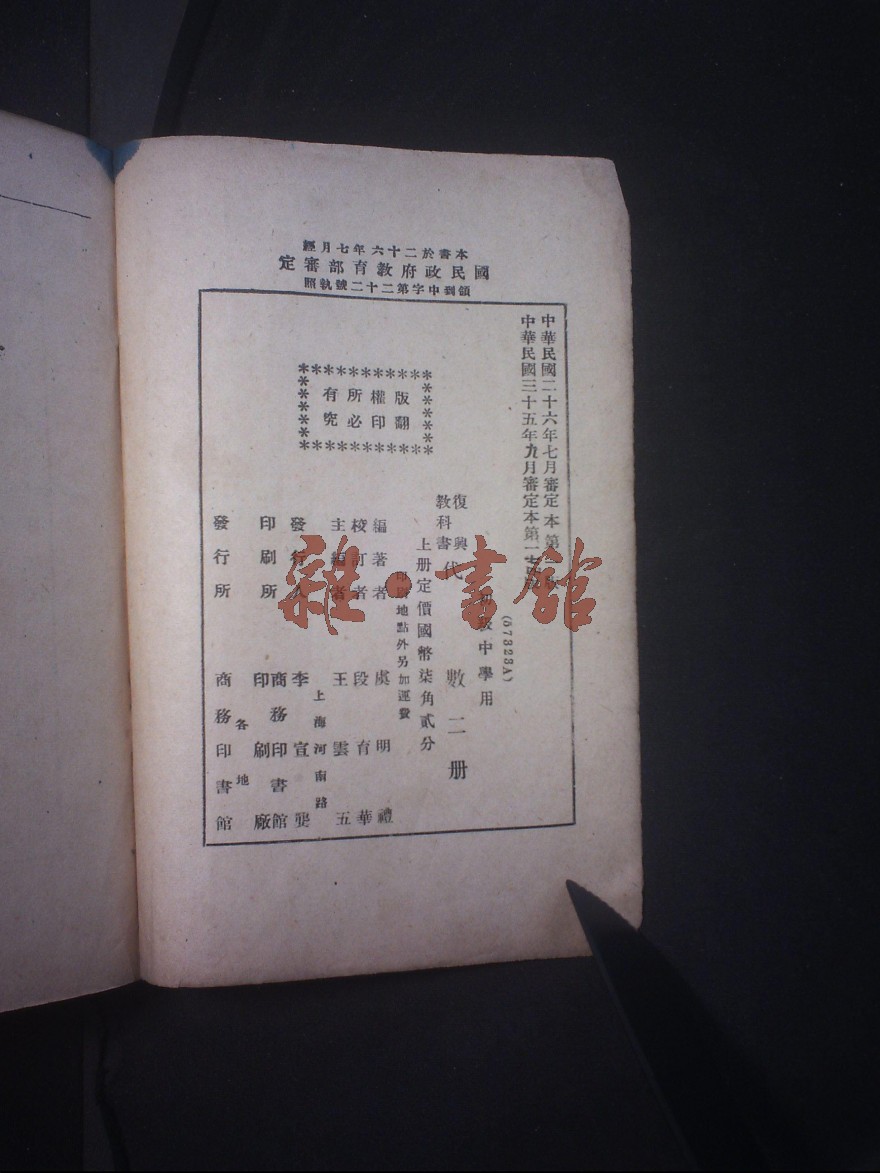 本書於二十六年七月經
國民政府教育部審定
領到中字第二十二號執照
中華民國二十六年七月審定本第
中華民國三十五年九月審定本第一
(57323A)
初級中學用
復興
教科書
代數二册
上册定價國幣柒角貳分
印刷地點外另加運費
版權所有
翻印必究
編著者 虞明禮
校訂者 段育華
主編者 王雲五
上海河南路
發行人 李宣龔
印刷所 商務印書館
印刷廠
各地
發行所 商務印書館
雜·書館